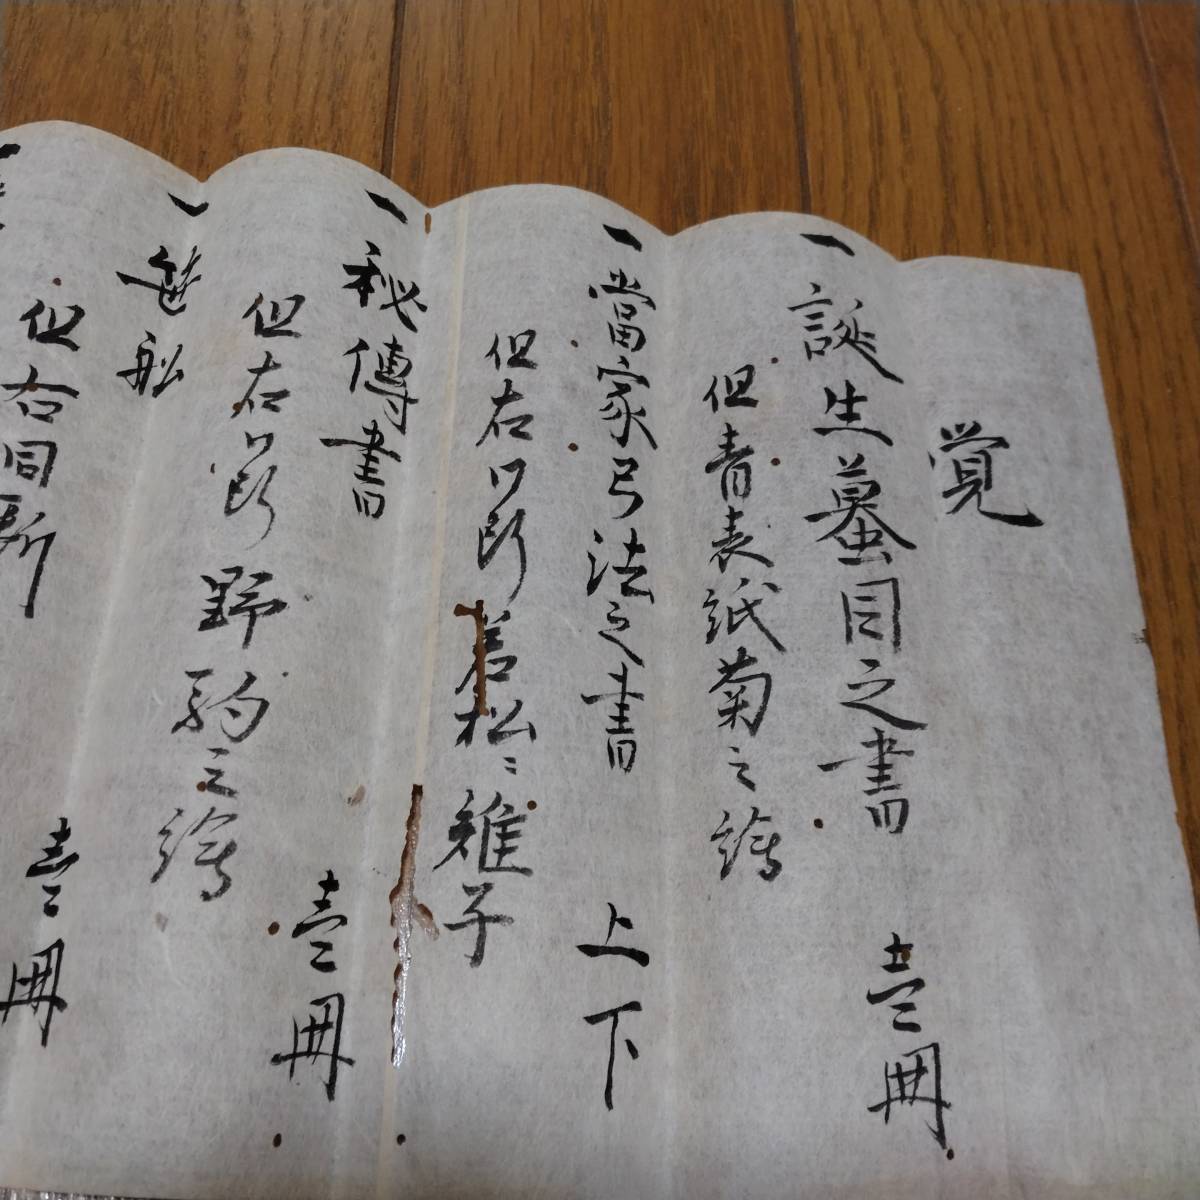 覚
一誕生蟇目之書 壹冊
但青表紙菊之繪
一當家弓法之書 上下
但右同断若松ニ雉子
一秘傳書 壹冊
但右同断野駒之繪
一進 壹冊
但右同断
一